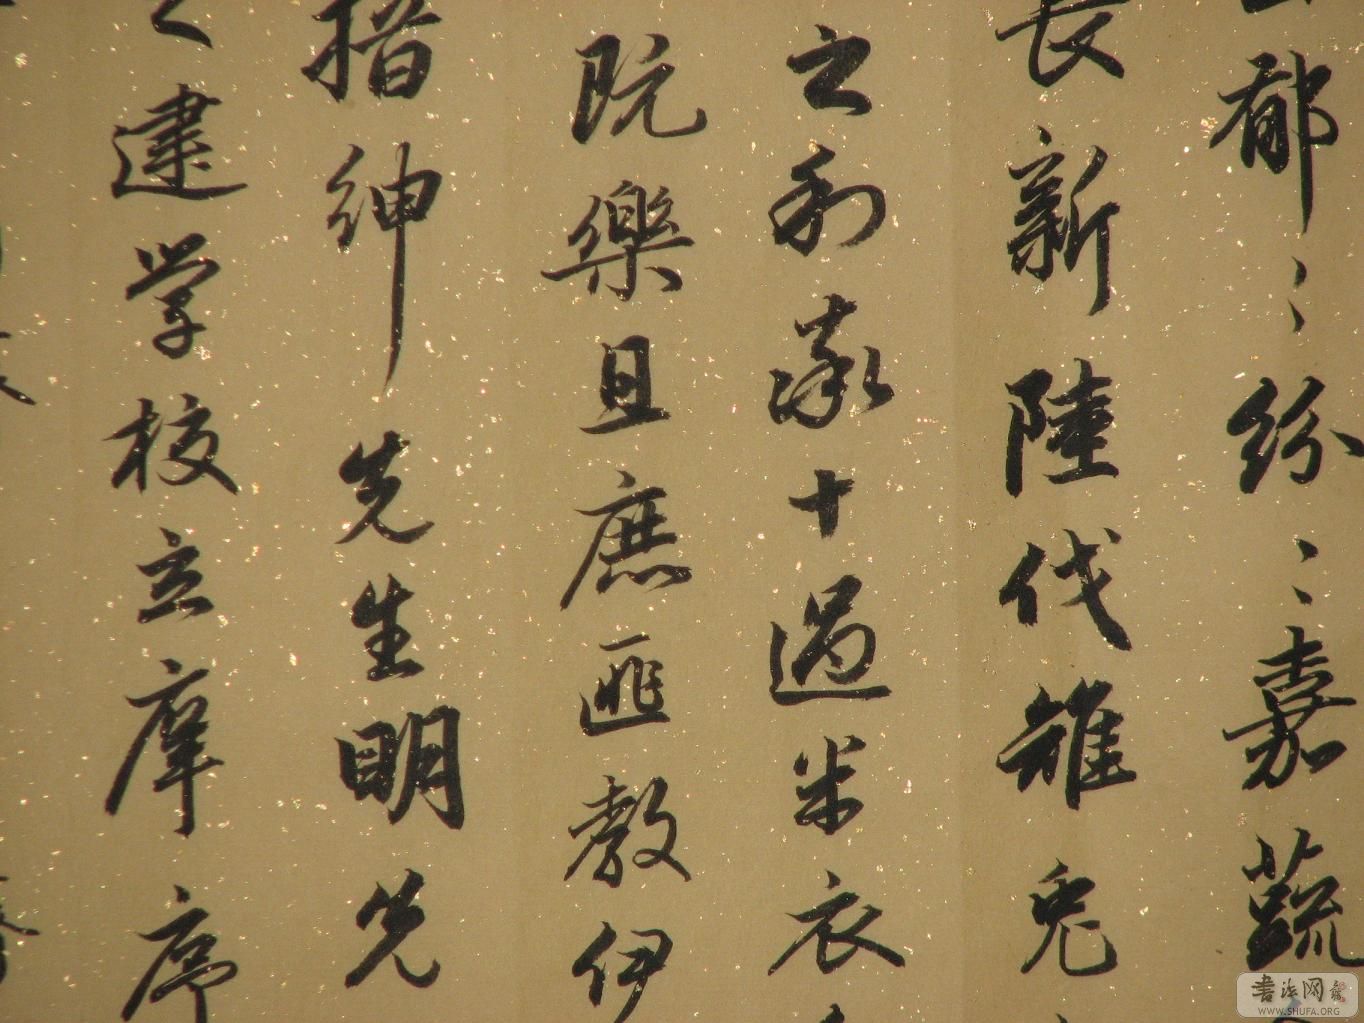 郁〻紛〻嘉蔬
長新陸伐雉兔
之利家十過米衣
既樂且庶匪教伊
搢紳先生明先
之建学校立庠序
書法网
WWW.SHUFA.ORG